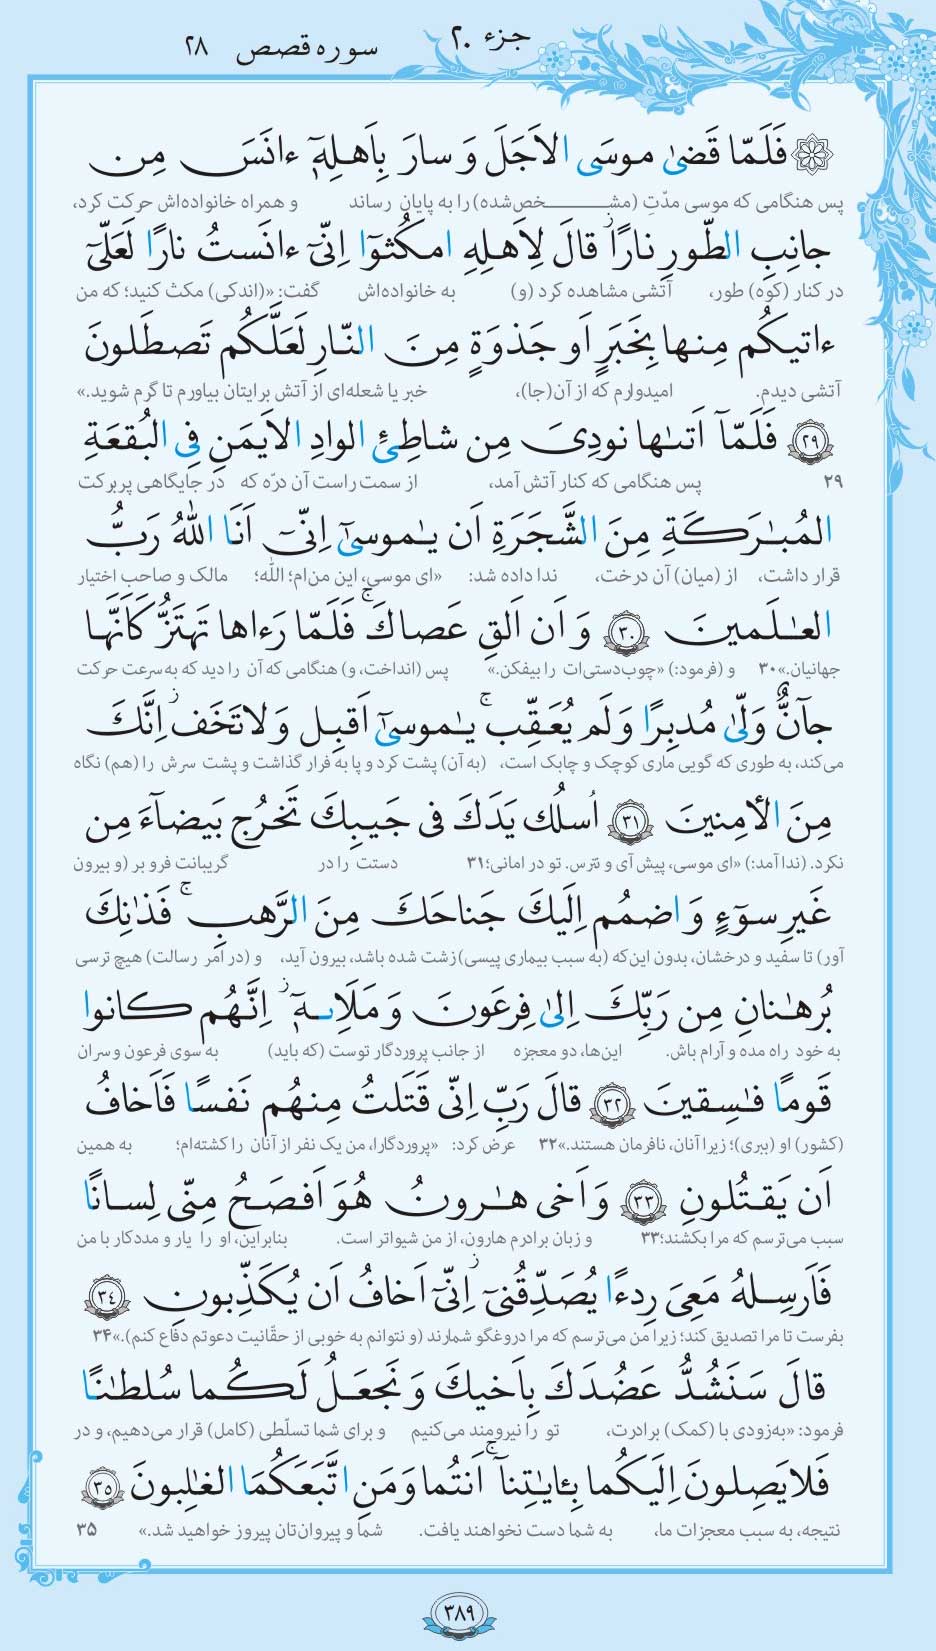 جزء ۲۰
سوره قصص ۲۸
فَلَمّا قَضىٰ موسَى الاَجَلَ وَ سارَ بِاَهلِهٖٓ ءانَسَ مِن
پس هنگامی که موسی مدّتِ (مشخص‌شده) را به پایان رساند و همراه خانواده‌اش حرکت کرد،
جانِبِ الطّورِ نارًا ۚ قالَ لِاَهلِهِ امكُثوٓا اِنّىٓ ءانَستُ نارًا لَعَلّىٓ
در کنار (کوه) طور، آتشی مشاهده کرد (و) به خانواده‌اش گفت: «(اندکی) مکث کنید؛ که من
ءاتيكُم مِنها بِخَبَرٍ اَو جَذوَةٍ مِنَ النّارِ لَعَلَّكُم تَصطَلونَ
آتشی دیدم. امیدوارم که از آن(جا)، خبر یا شعله‌ای از آتش برایتان بیاورم تا گرم شوید.»
﴿٢٩﴾ فَلَمّآ اَتىٰها نودِىَ مِن شاطِئِ الوادِ الاَيمَنِ فِى البُقعَةِ
۲۹ پس هنگامی که کنار آتش آمد، از سمت راست آن درّه که در جایگاهی پربرکت
المُبٰرَكَةِ مِنَ الشَّجَرَةِ اَن يٰموسىٓ اِنّىٓ اَنَا اللّٰهُ رَبُّ
قرار داشت، از (میان) آن درخت، ندا داده شد: «ای موسی، این من‌ام؛ الله؛ مالک و صاحب اختیار
العٰلَمينَ ﴿٣٠﴾ وَ اَن اَلقِ عَصاكَ ۚ فَلَمّا رَءاها تَهتَزُّ كَاَنَّها
جهانیان.»۳۰ و (فرمود:) «چوب‌دستی‌ات را بیفکن.» پس (انداخت، و) هنگامی که آن را دید که به‌سرعت حرکت
جآنٌّ وَلّىٰ مُدبِرًا وَ لَم يُعَقِّب ۚ يٰموسىٓ اَقبِل وَ لا تَخَف ۖ اِنَّكَ
می‌کند، به طوری که گویی ماری کوچک و چابک است، (به آن) پشت کرد و پا به فرار گذاشت و پشت سرش را (هم) نگاه
مِنَ الأمِنينَ ﴿٣١﴾ اُسلُك يَدَكَ فى جَيبِكَ تَخرُج بَيضآءَ مِن
نکرد. (ندا آمد:) «ای موسی، پیش آی و نترس. تو در امانی؛۳۱ دستت را در گریبانت فرو بر (و بیرون
غَيرِ سوٓءٍ وَ اضمُم اِلَيكَ جَناحَكَ مِنَ الرَّهبِ ۚ فَذٰنِكَ
آور) تا سفید و درخشان، بدون این‌که (به سبب بیماری پیسی) زشت شده باشد، بیرون آید، و (در امر رسالت) هیچ ترسی
بُرهٰنانِ مِن رَبِّكَ اِلىٰ فِرعَونَ وَ مَلَا۟ئِهٖٓ ۚ اِنَّهُم كانوا
به خود راه مده و آرام باش. این‌ها، دو معجزه از جانب پروردگار توست (که باید) به سوی فرعون و سران
قَومًا فٰسِقينَ ﴿٣٢﴾ قالَ رَبِّ اِنّى قَتَلتُ مِنهُم نَفسًا فَاَخافُ
(کشور) او (ببری)؛ زیرا آنان، نافرمان هستند.»۳۲ عرض کرد: «پروردگارا، من یک نفر از آنان را کشته‌ام؛ به همین
اَن يَقتُلونِ ﴿٣٣﴾ وَ اَخى هٰرونُ هُوَ اَفصَحُ مِنّى لِسانًا
سبب می‌ترسم که مرا بکشند؛۳۳ و زبان برادرم هارون، از من شیواتر است. بنابراین، او را یار و مددکار با من
فَاَرسِلهُ مَعِىَ رِدءًا يُصَدِّقُنىٓ ۖ اِنّىٓ اَخافُ اَن يُكَذِّبونِ ﴿٣٤﴾
بفرست تا مرا تصدیق کند؛ زیرا من می‌ترسم که مرا دروغگو شمارند (و نتوانم به خوبی از حقّانیت دعوتم دفاع کنم).»۳۴
قالَ سَنَشُدُّ عَضُدَكَ بِاَخيكَ وَ نَجعَلُ لَكُما سُلطٰنًا
فرمود: «به‌زودی با (کمک) برادرت، تو را نیرومند می‌کنیم و برای شما تسلّطی (کامل) قرار می‌دهیم، و در
فَلا يَصِلونَ اِلَيكُما بِـٔايٰتِنآ ۚ اَنتُما وَ مَنِ اتَّبَعَكُمَا الغٰلِبونَ ﴿٣٥﴾
نتیجه، به سبب معجزات ما، به شما دست نخواهند یافت. شما و پیروان‌تان پیروز خواهید شد.» ۳۵
۳۸۹